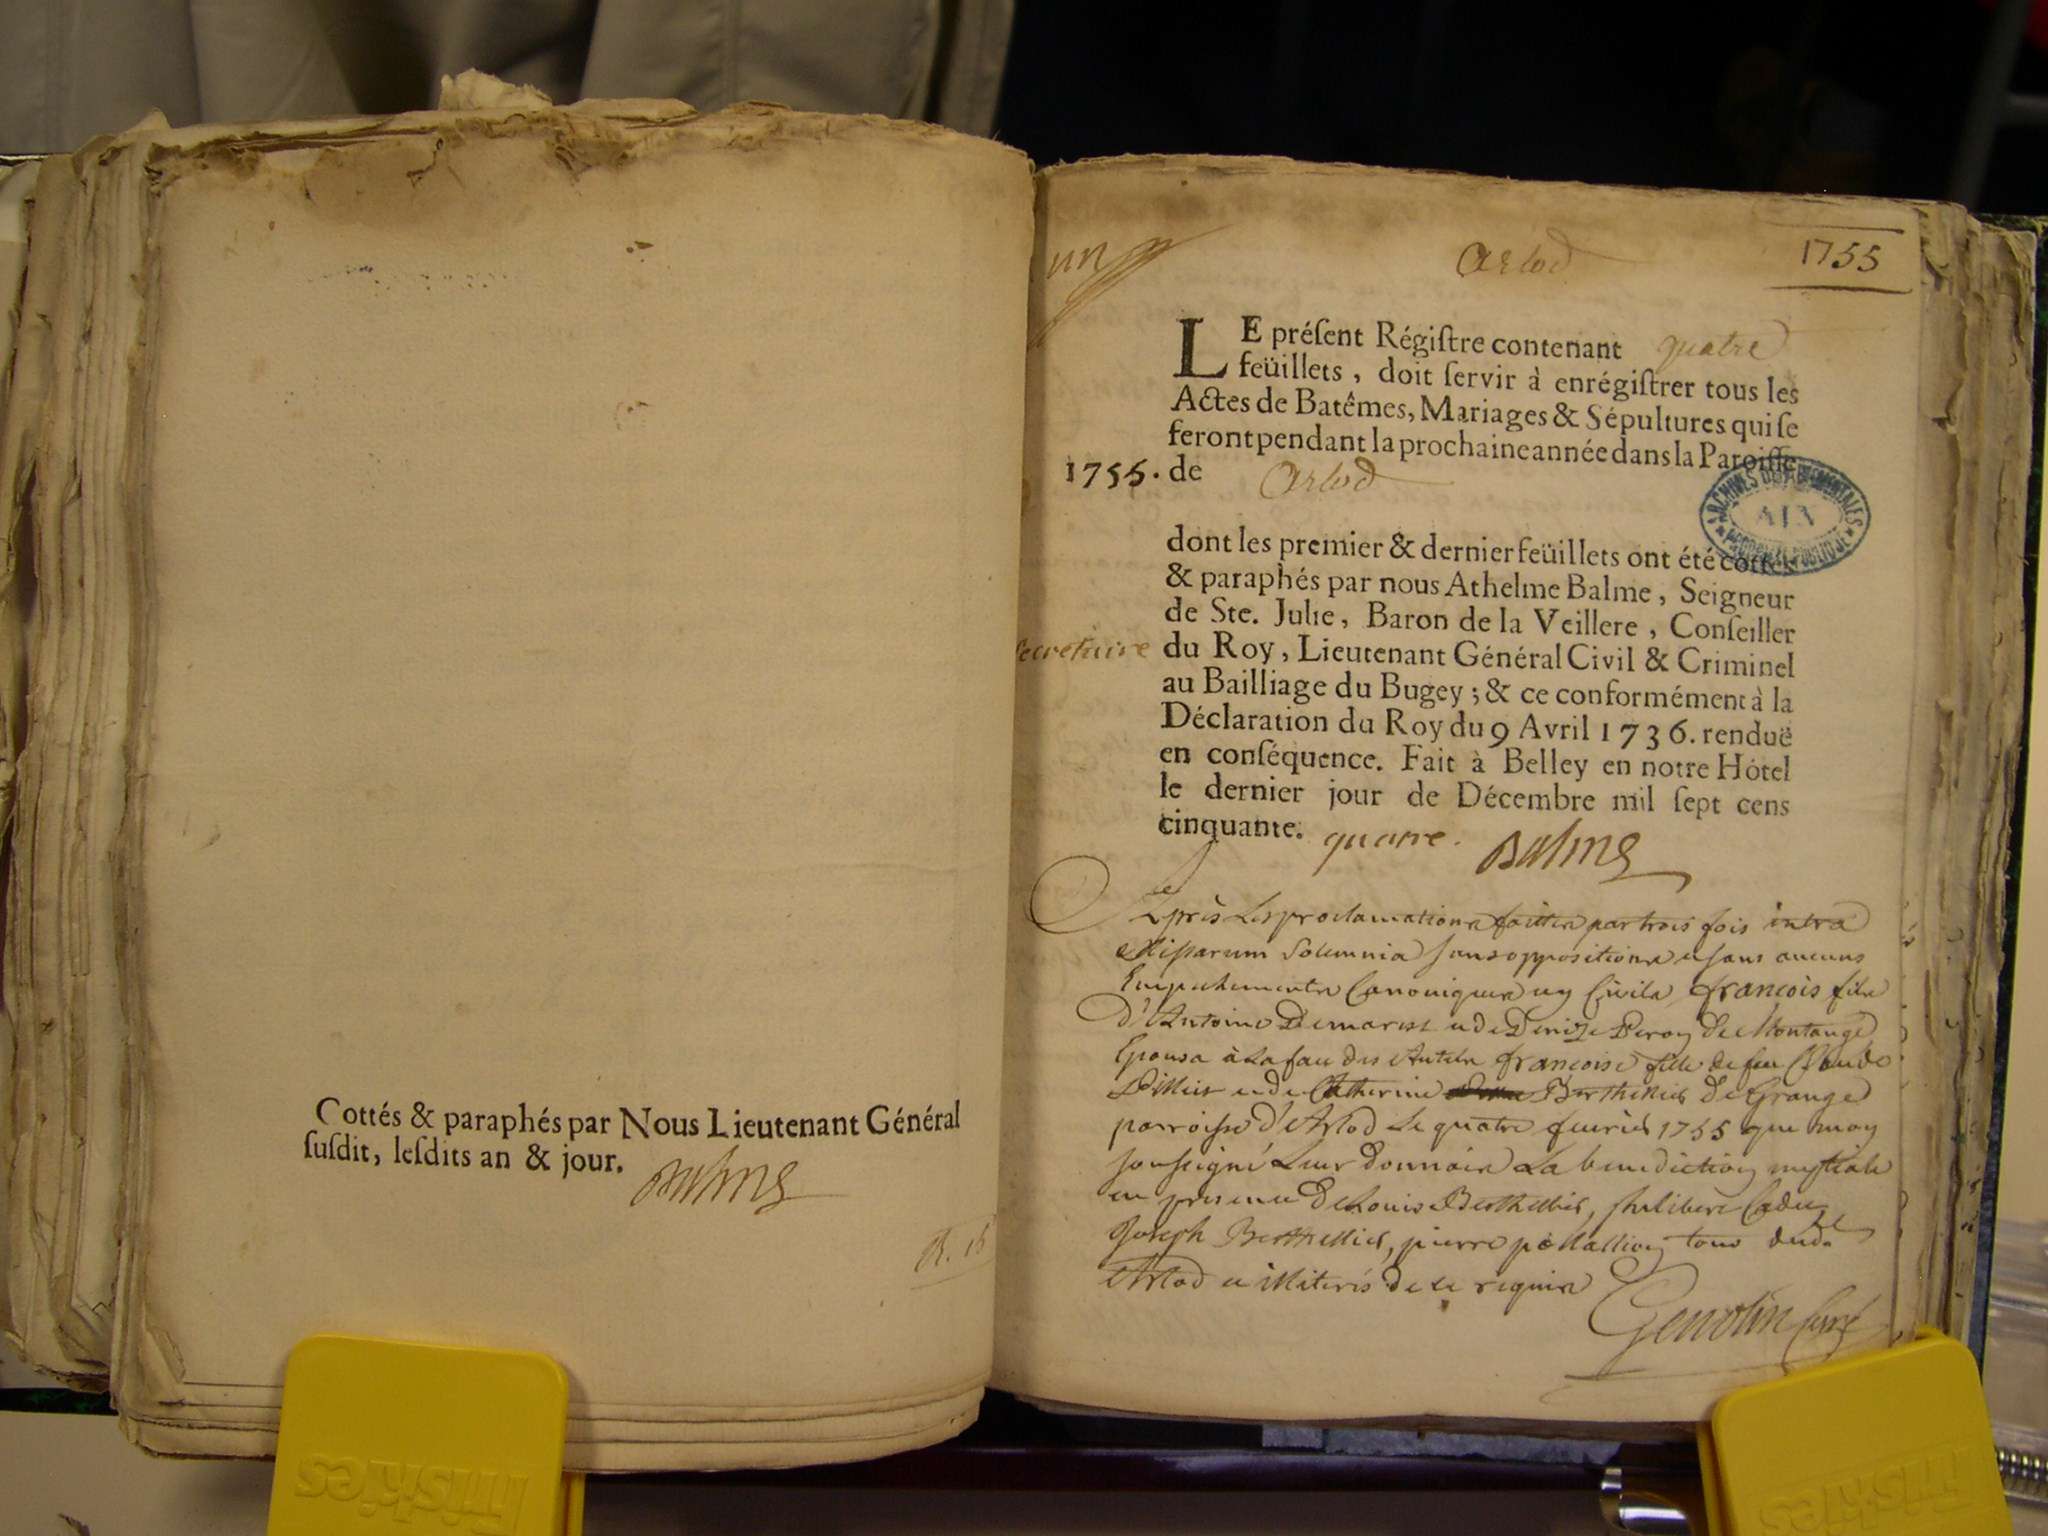 Cottés & paraphés par Nous Lieutenant Général
susdit, lesdits an & jour. Balme
un
Arlod
1755
LE présent Régistre contenant quatre
feüillets, doit servir à enrégistrer tous les
Actes de Batêmes, Mariages & Sépultures qui se
feront pendant la prochaine année dans la Paroisse
1755. de Arlod
ARCHIVES DÉPARTEMENTALES
AIN
PROPRIÉTÉ PUBLIQUE
dont les premier & dernier feüillets ont été cottés
& paraphés par nous Athelme Balme, Seigneur
de Ste. Julie, Baron de la Veillere, Conseiller
secretaire du Roy, Lieutenant Général Civil & Criminel
au Bailliage du Bugey; & ce conformément à la
Déclaration du Roy du 9 Avril 1736. renduë
en conséquence. Fait à Belley en notre Hôtel
le dernier jour de Décembre mil sept cens
cinquante. quatre. Balme
Après les proclamations faittes par trois fois intra
missarum solemnia sans opposition et sans aucuns
Empechements Canoniques ny Civils, françois fils
d'Antoine Demarest et de Denize Peroy de Montange
Epousa à la face des Autels françoise fille de feu Claude
Dillies et de Catherine Berthellier de Grange
parroisse d'Arlod le quatre fevrier 1755 que moy
soussigné leur donnois la benediction nuptiale
en presence de Louis Berthellier, philibert
Joseph Berthellier, pierre tous dud.
Arlod et illiterés de ce requis
Genolin Curé